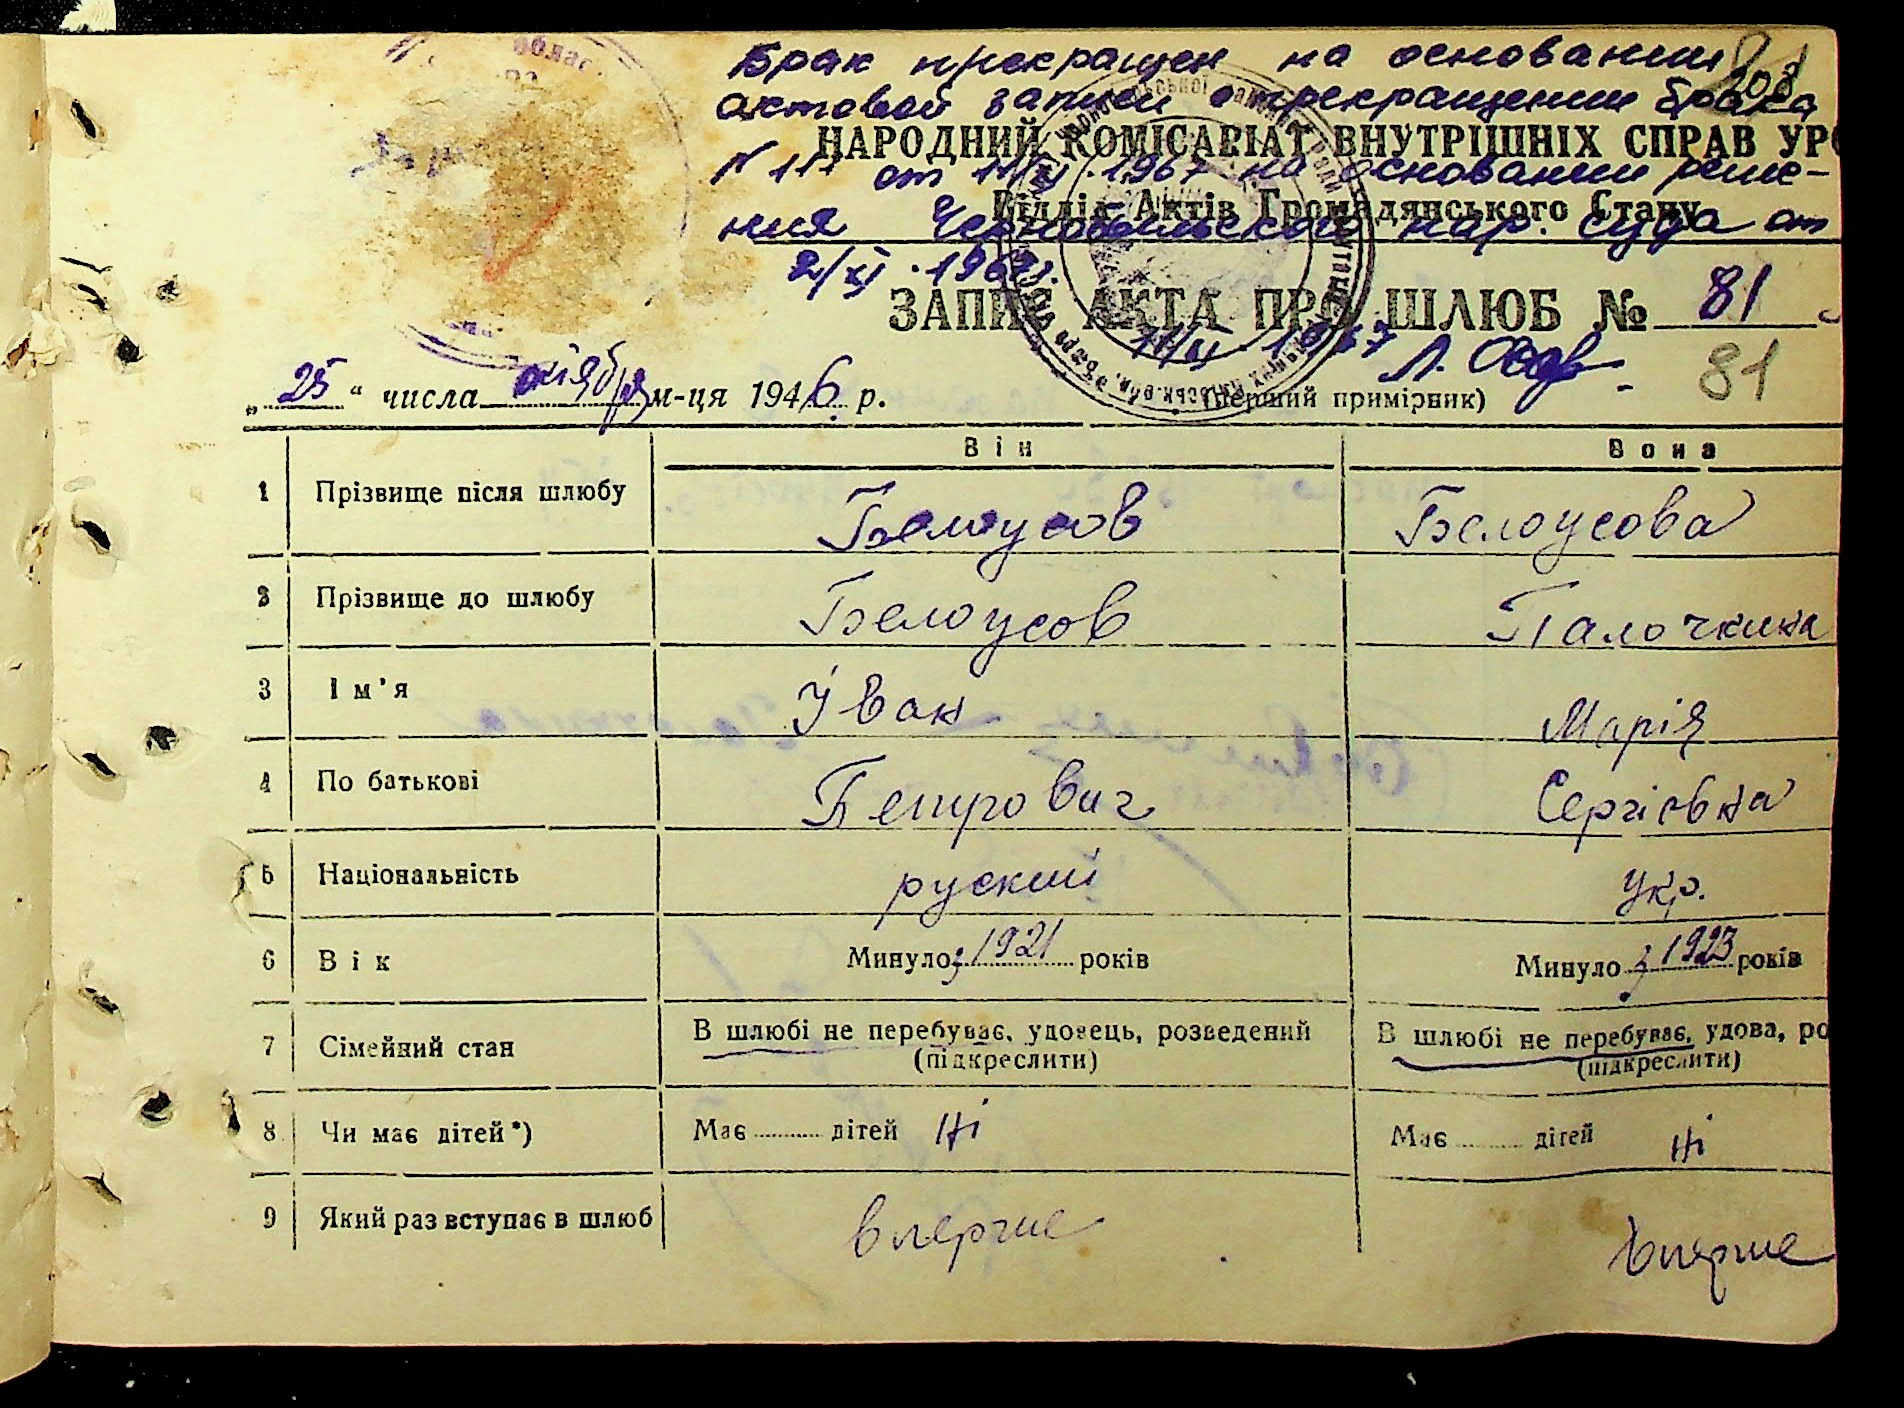 Брак прекращен на основании
актовой записи о прекращении брака
НАРОДНИЙ КОМІСАРІАТ ВНУТРІШНІХ СПРАВ УР
от 1967 на основании реше-
Відділ Актів Громадянського Стану
ния Чернобыльского нар. суда от
2/XI.1967.
ЗАПИС АКТА ПРО ШЛЮБ № 81
„25“ числа октября м-ця 1946 р.
(перший примірник)
81
Він Вона
1 Прізвище після шлюбу Белоусов Белоусова
2 Прізвище до шлюбу Белоусов Палочкина
3 Ім'я Іван Марія
4 По батькові Петрович Сергієвна
5 Національність руский укр.
6 Вік Минуло з 1921 років Минуло з 1923 років
7 Сімейний стан В шлюбі не перебуває, удовець, розведений В шлюбі не перебуває, удова, ро
(підкреслити) (підкреслити)
8 Чи має дітей*) Має дітей Ні Має дітей Ні
9 Який раз вступає в шлюб вперше вперше